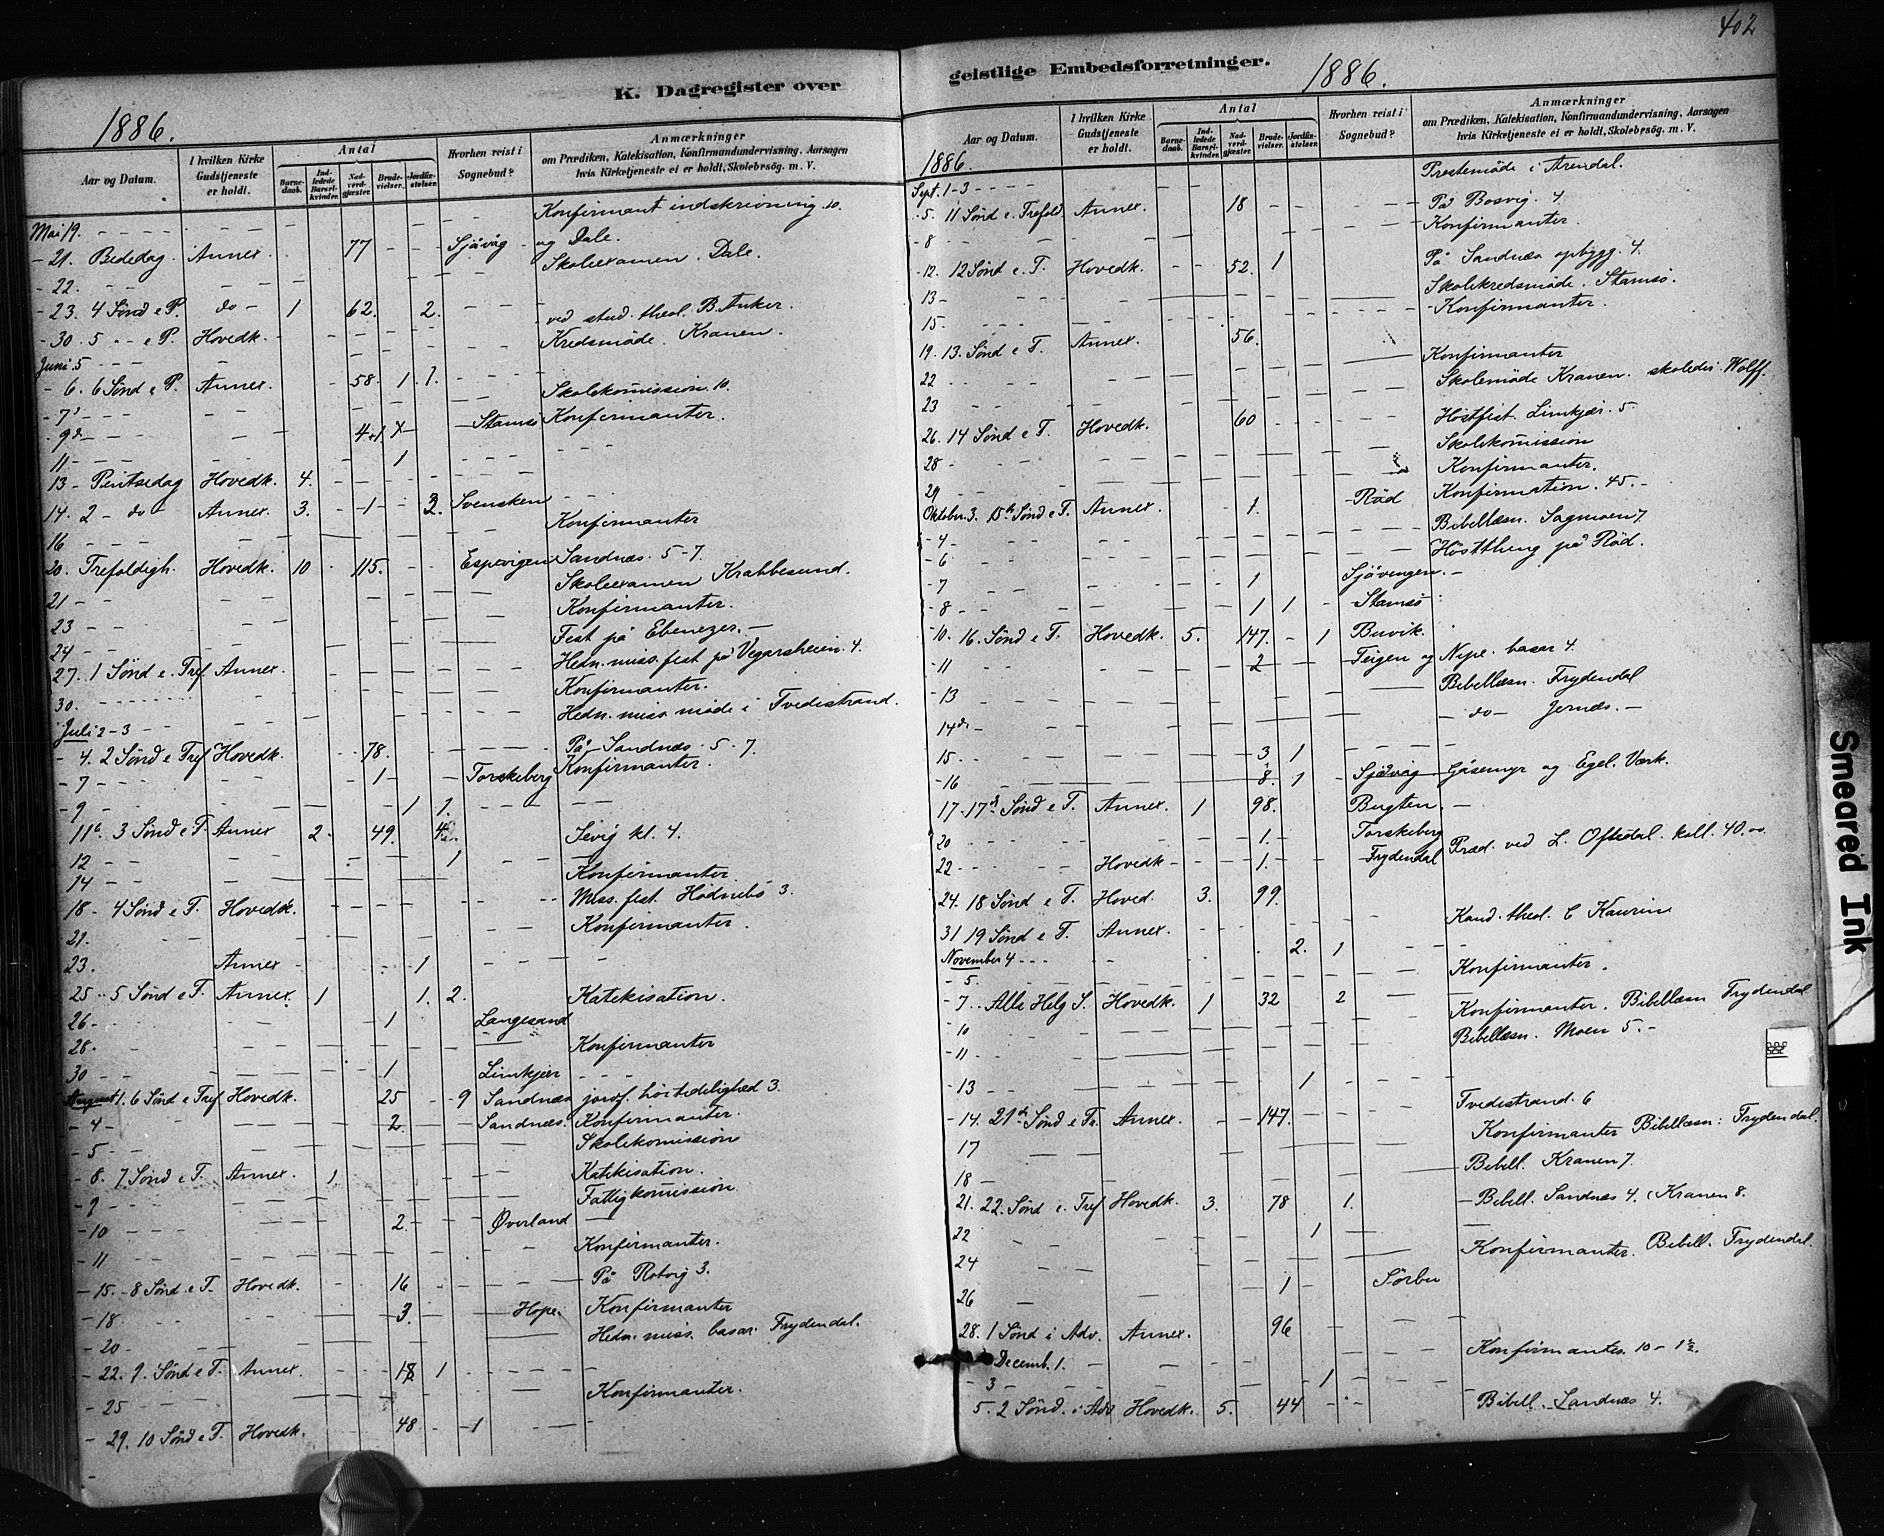 402
K. Dagregister over geistlige Embedsforretninger.
1886.
1886.
Aar og Datum. I hvilken Kirke Gudstjeneste er holdt. Antal Barnedaab. Indledede Barselkvinder. Nadverdgjæster. Brudevielser. Jordfæstelser. Hvorhen reist i Sognebud? Anmærkninger om Prædiken, Katekisation, Konfirmandundervisning, Aarsagen hvis Kirketjeneste ei er holdt, Skolebesög. m. V.
Mai 19. Konfirmant indskrivning. 10.
- 21. Bededag. Annex. 77 Sjåvåg - og Dale.
22. Skoleexamen. Dale.
- 23. 4 Sønd e P. do - 1 62. 2.
- 30. 5 - - e P. Hovedk. ved stud. theol. B. Anker.
Juni 5 Kredsmöde. Kranen.
- 6. 6 Sønd e P. Annex. 58. 1. 1.
- 7 Skolekomission. 10.
- 9 4+1 Stamsö Konfirmanter.
11 1
13 - Pintsedag Hovedk. 4.
14. 2 - do - Annex. 3. 1 Svensken
16 Konfirmanter
20. Trefoldigh. Hovedk. 10 115. Espevigen Sandnæs. 5-7.
21 Skoleexamen Krabbesund.
23 Konfirmanter.
24 Fest på Ebenezer. -
27. 1 Sønd e. Tref Annex. Hedn. miss. fest på Vegarsheien. 4.
30. Konfirmanter.
Juli 2-3 Hedn. miss. möde i Tvedestrand.
- 4. 2 Sønd e Tref Hovedk. 78. På Sandnæs. 5-7.
- 7 1 Torskeberg Konfirmanter.
- 9 1 1.
11 3 Sønd e T. Annex 2. 49. 4 Sevig kl. 4.
12 1
14 Konfirmanter.
18 - 4 Sønd e T. Hovedk. Miss. fest. Hødnebö 3.
21. Konfirmanter.
23. Annex 1
25 - 5 Sønd e T. Annex. 1 1. 2. Katekisation.
26 1 Langesand
28. Konfirmanter
30 1 Limkjær
August 1. 6 Sønd e Tref Hovedk. 25 9 Sandnæs 3.
- 4 2. Sandnæs. Konfirmanter.
- 5 Skolekomission
- 8. 7 Sønd e T. Annex. 1. Katekisation.
- 9 Fattigkomission
- 10 2 Øverland
- 11 Konfirmanter.
- 15. - 8 Sønd e T. Hovedk. 16 På Rotvig 3.
- 18 3. Hope. Konfirmanter
- 20 Hedn. miss. basar. Frydendal.
- 22. 9. Sønd e T. Annex. 1
- 25 Konfirmanter.
- 29. 10 Sønd e T. Hovedk. 48 1
Aar og Datum. I hvilken Kirke Gudstjeneste er holdt. Antal Barnedaab. Indledede Barselkvinder. Nadverdgjæster. Brudevielser. Jordfæstelser. Hvorhen reist i Sognebud? Anmærkninger om Prædiken, Katekisation, Konfirmandundervisning, Aarsagen hvis Kirketjeneste ei er holdt, Skolebesög. m. V.
1886.
Sept. 1-3 Prestemöde i Arendal.
- 5. 11 Sønd e. Trefold Annex. 18 På Bosvig. 4
- 8 Konfirmanter.
- 12. 12 Sønd e. T. Hovedk. 52. 1 På Sandnæs opbygg. 4.
13 Skolekredsmöde. Stamsö.
15. Konfirmanter.
19. 13. Sønd e T. Annex. 56.
22 Konfirmanter
23 Skolemöde Kranen. skoledir. Wolff.
26. 14 Sønd e T. Hovedk. 60 Höstfest. Limkjær. 5.
28 Skolekomission
29 Konfirmanter.
Oktober. 3. 15 Sønd e T. Annex. 1. Röd Konfirmation. 45. -
- 4 Bibellæsn. Sagmoen 7.
- 6 Höstthing på Röd.
- 7 1 Sjåvengen.
- 8 1 1 Stamsö
- 10. 16. Sønd e T. Hovedk. 5. 147. 1 Buvik.
- 11 2 Teigen og Nipe. basar 4.
- 13 Bibellæsn. Frydendal
14 - do - Jernæs. -
15. 3 1
- 16 8. 1 Sjåvåg Gåsemyr og Egel. Værk.
17. 17 Sønd e T. Annex. 1 98. Bugten.
20 1. Torskeberg
22 Hovedk 1. Frydendal Præd. ved L. Oftedal. koll. 40.00
24. 18 Sønd e T. Hoved. 3. 99.
31 19 Sønd e T. Annex. Kand. theol. C Kaurin
November 4 2. 1
- 5. Konfirmanter.
- 7. Alle Helg S. Hovedk. 1 32 2
- 10 Konfirmanter. Bibellæsn Frydendal
- 11 Bibellæsn. Moen 5. -
- 13 1
- 14. 21 Sønd e Tr. Annex. 147. Tvedestrand. 6
17 Konfirmanter Bibellæsn: Frydendal.
18 Bibell. Kranen 7.
21. 22. Sønd e. Tref Hovedk. 3. 78 1. Bibell. Sandnæs 4. Kranen 8.
22 1
24 Konfirmanter. Bibell. Frydendal.
26 1 Sörbu
28. 1 Sønd i Adv. Annex. 96
Decemb. 1. Konfirmanter. 10 - 1½.
- 3 1
5. 2 Sønd. i Adv Hovedk. 5. 44 Bibell. Sandnæs 4.
Smeared Ink